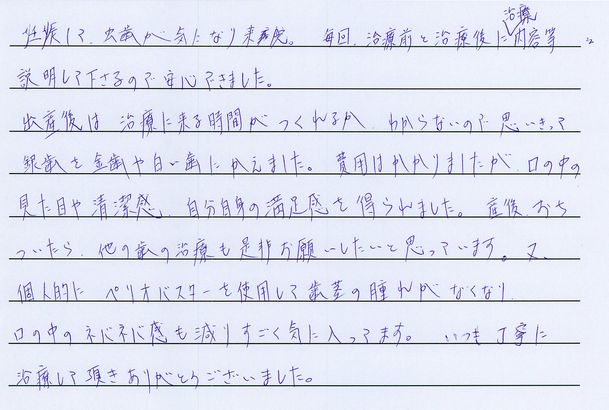 妊娠して、虫歯が気になり来院。毎回、治療前と治療後に治療内容等
説明して下さるので安心できました。
出産後は 治療に来る時間が つくれるか、わからないので 思いきって
銀歯を金歯や白い歯に かえました。費用はかかりましたが、口の中の
見た目や清潔感、自分自身の満足感を得られました。産後、おち
ついたら、他の歯の治療も是非お願いしたいと思っています。又、
個人的に ペリオバスターを使用して歯茎の腫れが なくなり
口の中のネバネバ感も減りすごく気に入ってます。いつも丁寧に
治療して頂きありがとうございました。